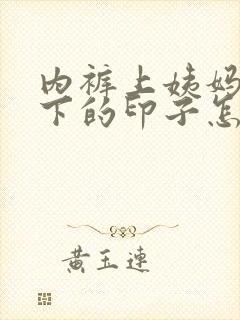 内裤上姨妈
下的印子怎
黄玉连